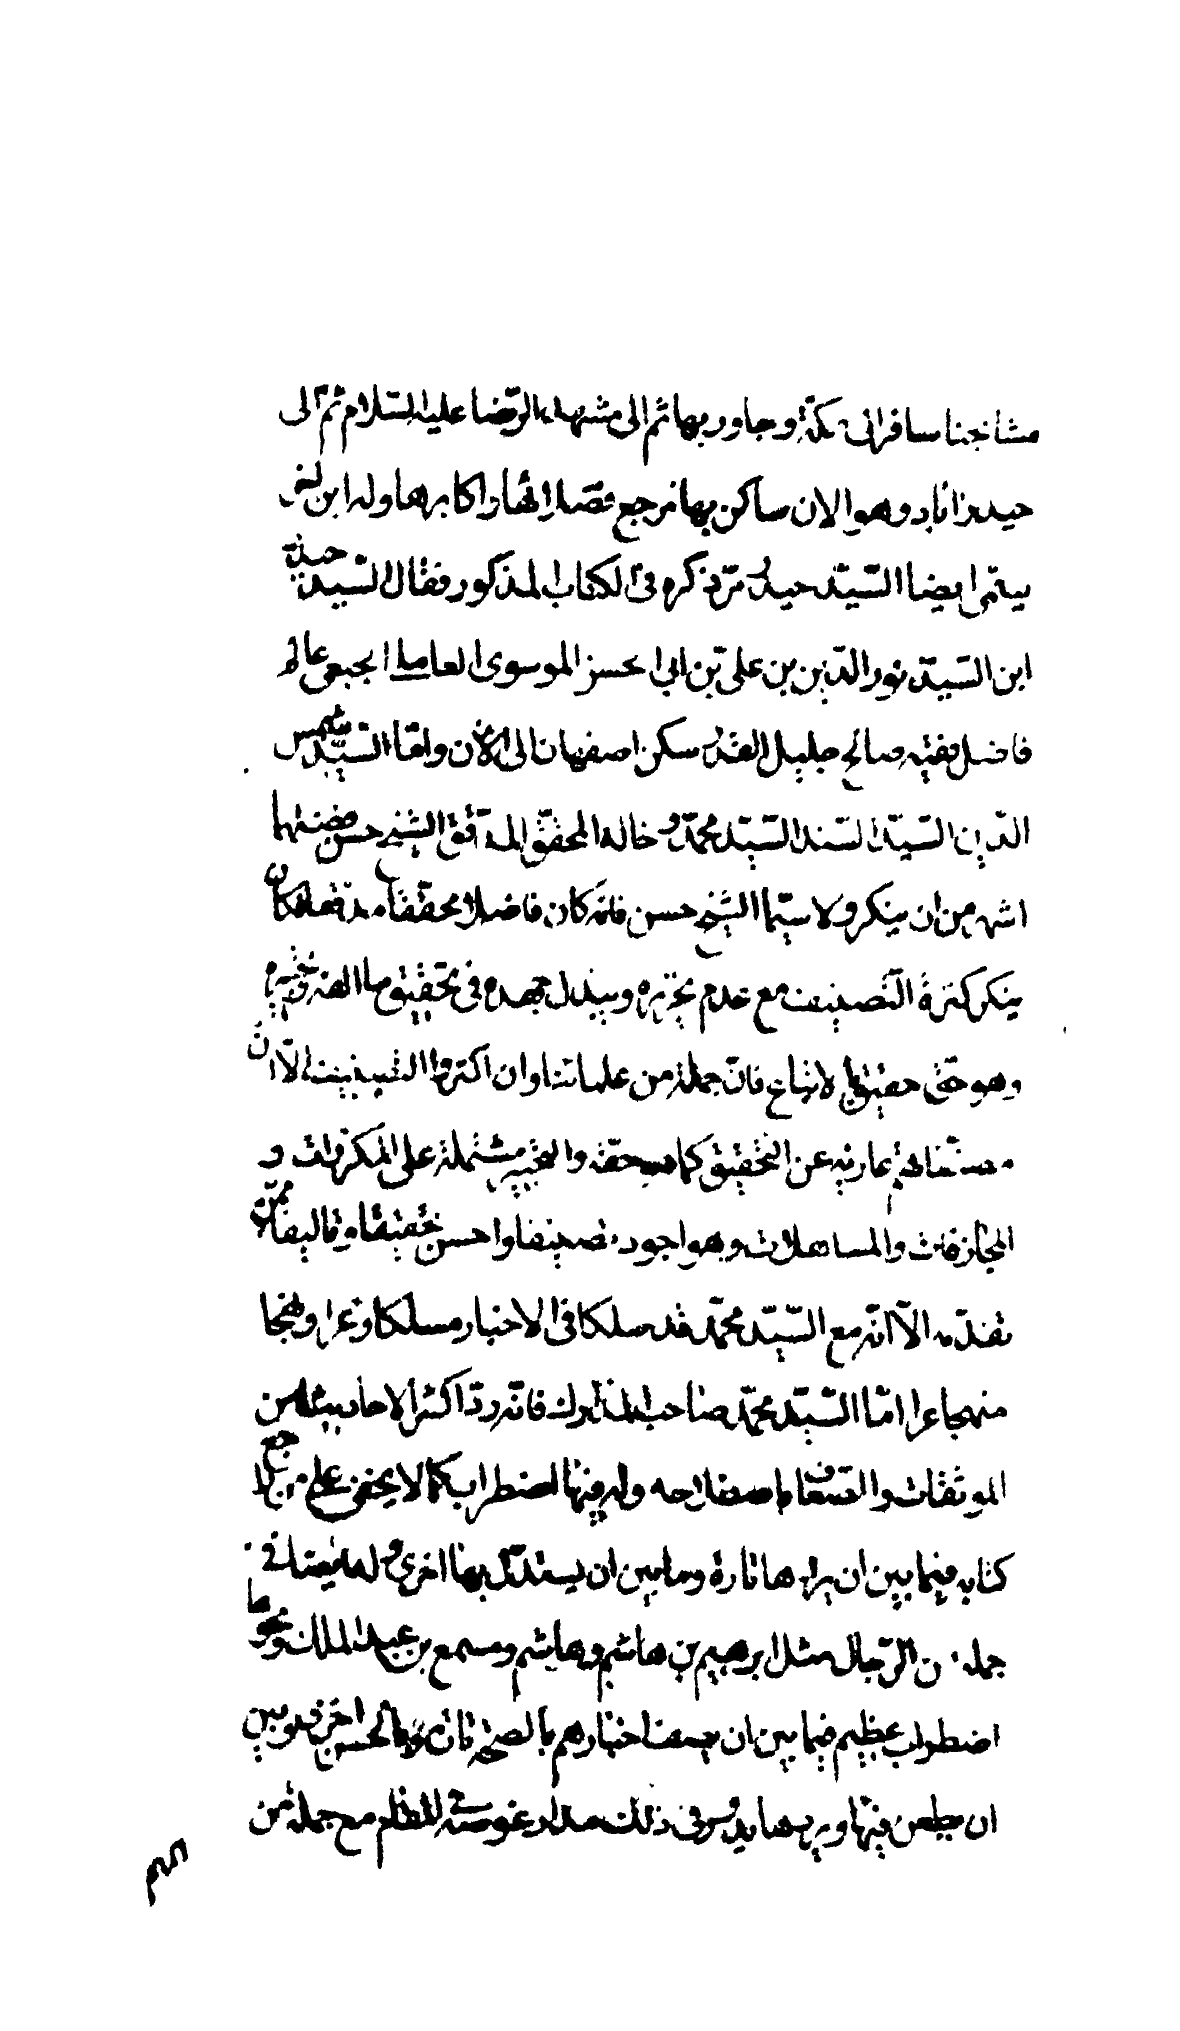 مشايخنا سافر الى مكة وجاور بها ثم الى مشهد الرضا عليه السلام ثم الى
حيدراباد وهو الان ساكن بها مرجع فضلائها واكابرها وله ابن
يسمى ايضا السيد حيدر مرّ ذكره في الكتاب المذكور فقال السيد حيدر
ابن السيد نور الدين بن علي بن ابي الحسن الموسوى العاملى الجبعى عالم
فاضل فقيه صالح جليل القدر سكن اصفهان الى الان وامّا السيد شمس
الدين السيد السند السيد محمّد وخاله المحقق المدقق الشيخ حسن ففضلهما
اشهر من ان ينكر ولا سيّما الشيخ حسن فانه كان فاضلا محققا مدققا وكان
ينكر كثرة التصنيف مع عدم تحريره ويبذل جهده في تحقيق ما الفه وتحبيره
وهو حق حقيق بالاتباع فان جملة من علمائنا وان اكثروا التصنيف الّا ان
مصنفاتهم عارية عن التحقيق كما هو حقه والتحبير مشتملة على المكررات و
المجازفات والمساهلات وهو اجود تصنيفا واحسن تحقيقا وتاليفا ممن
تقدمه الّا انّه مع السيّد محمّد قد سلكا في الاخبار مسلكا وعرا ونهجا
منهجا عسرا امّا السيّد محمّد صاحب المدارك فانّه ردّ اكثر الاحاديث من
الموثقات والضعاف باصطلاحه وله فيها اضطراب كما لا يخفى على من راجع
كتابه فيما بين ان يردها تارة وما بين ان يستدل بها اخرى وله ايضا في
جملة من الرجال مثل ابرهيم بن هاشم ومسمع بن عبد الملك ونحوها
اضطراب عظيم فيما بين ان يصف اخبارهم بالصحة تارة وبالحسن اخرى وبين
ان يطعن فيها ويردها يدور في ذلك مدار غرضه المقام مع جملة من